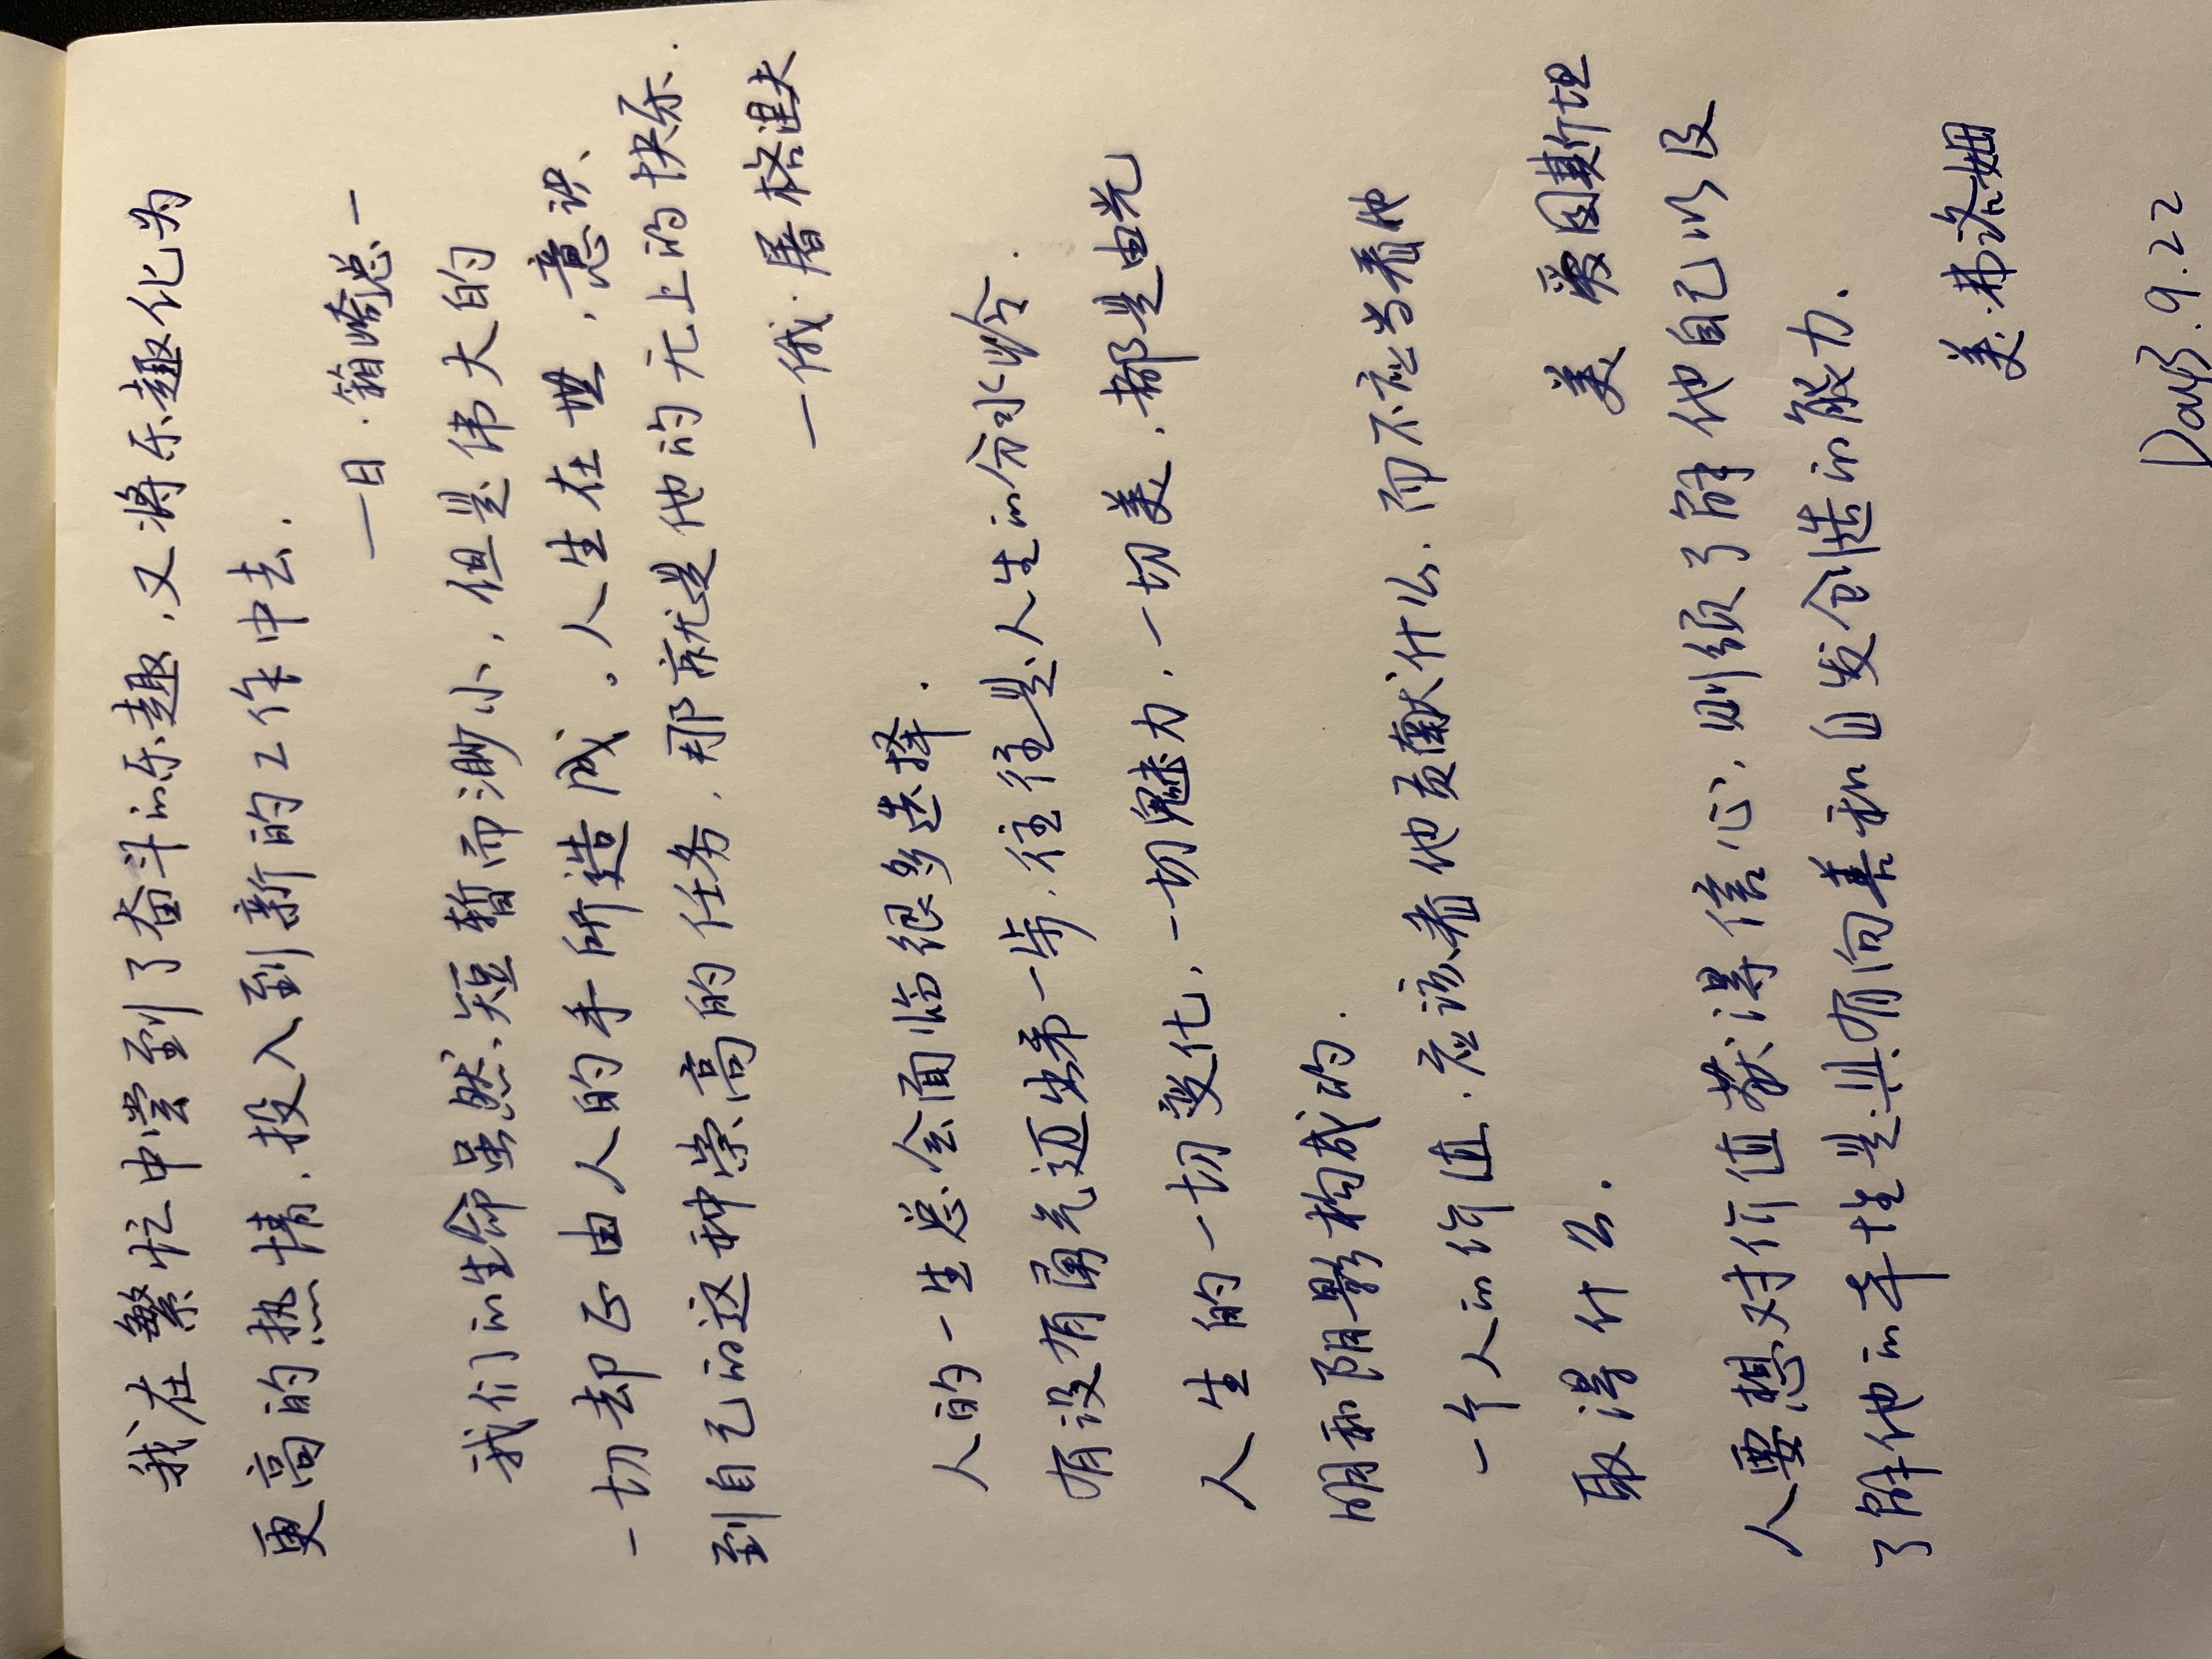 我在繁忙中尝到了奋斗的乐趣，又将乐趣化为
更高的热情，投入到新的工作中去.
一日·箱崎总一
我们的生命虽然短暂而渺小，但是伟大的
一切却正由人的手所造成。人生在世，意识
到自己的这种崇高的任务，那就是他的无上的快乐.
一俄·屠格涅夫
人的一生总会面临很多选择.
有没有勇气迈出第一步，往往是人生的分水岭.
人生的一切变化，一切魅力，一切美，都是由光
明和阴影构成的.
一个人的价值，应该看他贡献什么，而不应当看他
取得什么.
美 爱因斯坦
人要想对价值获得信心，则须了解他自己以及
了解他的本性是具有向善和自发创造的能力.
美·弗洛姆
Day3. 9.22